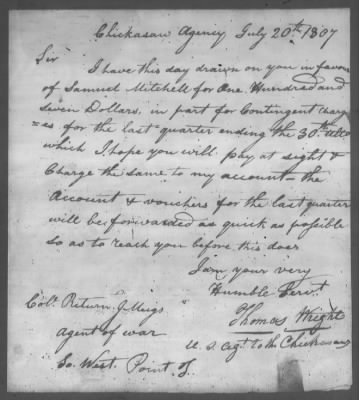 Chickasaw Agency July 20th 1807
Sir
I have this day drawn on you in favour
of Samuel Mitchell for One Hundred and
Seven Dollars, in part for Contingent charg
=es for the last quarter ending the 30th ulto
which I hope you will pay at sight &
Charge the same to my account - the
Account & vouchers for the last quarter
will be forwarded as quick as possible
so as to reach you before this does
I am your very
Humble Servt.
Thomas Wright
U. S. Agt. to the Chickasaws
Colo. Return J. Meigs
Agent of war
So. West. Point